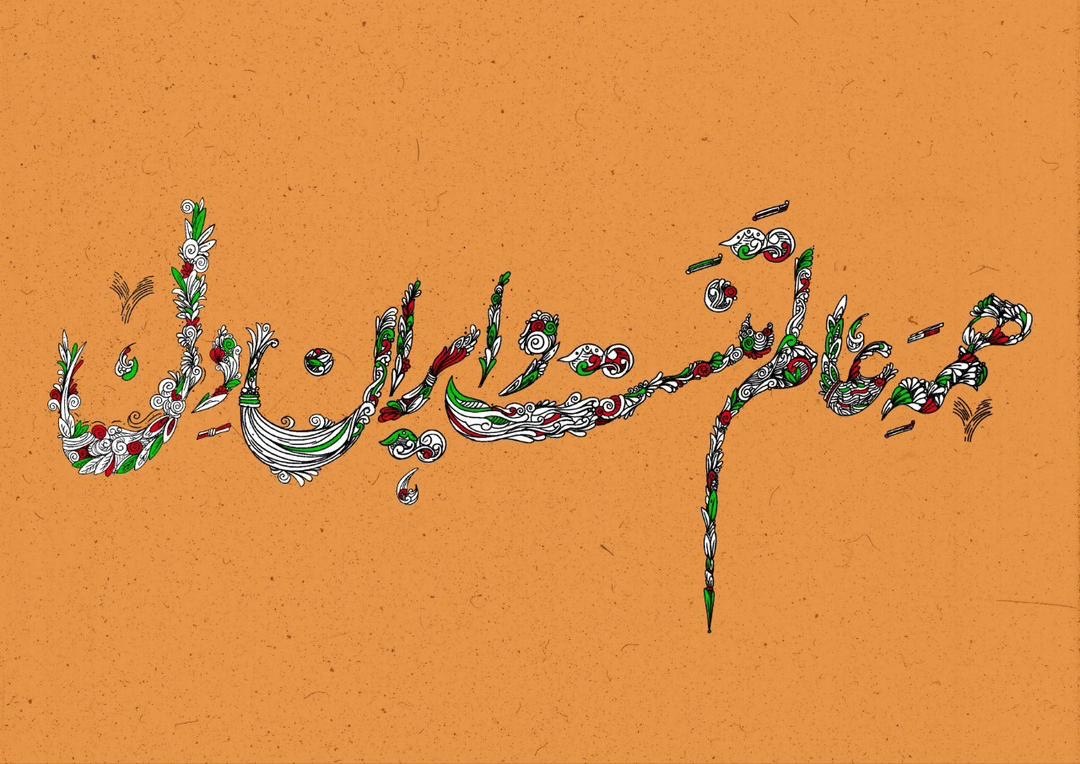 همه عالم تن است و ایران دل